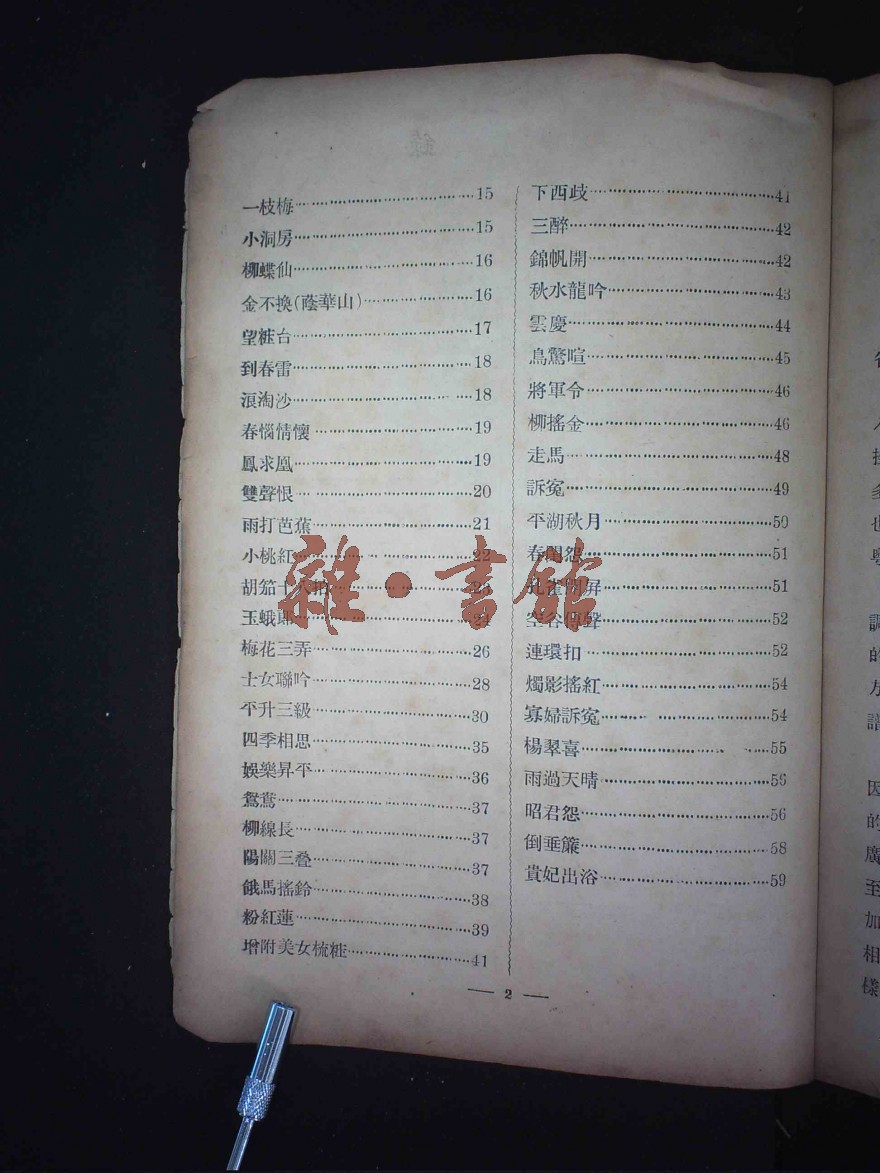 一枝梅……15
小洞房……15
柳蝶仙……16
金不換(蔭華山)……16
望粧台……17
到春雷……18
浪淘沙……18
春惱情懷……19
鳳求凰……19
雙聲恨……20
雨打芭蕉……21
小桃紅……22
胡笳十八拍……23
玉蛾郎……24
梅花三弄……26
士女聯吟……28
平升三級……30
四季相思……35
娛樂昇平……36
鴛鴦……37
柳線長……37
陽關三叠……37
餓馬搖鈴……38
粉紅蓮……39
增附美女梳粧……41
下西歧……41
三醉……42
錦帆開……42
秋水龍吟……43
雲慶……44
鳥驚喧……45
將軍令……46
柳搖金……46
走馬……48
訴冤……49
平湖秋月……50
春閨怨……51
孔雀開屏……51
空谷傳聲……52
連環扣……52
燭影搖紅……54
寡婦訴冤……54
楊翠喜……55
雨過天晴……56
昭君怨……56
倒垂簾……58
貴妃出浴……59
— 2 —
雜·書館
也
調
的
方
譜
因
的
廣
至
加
相
樣